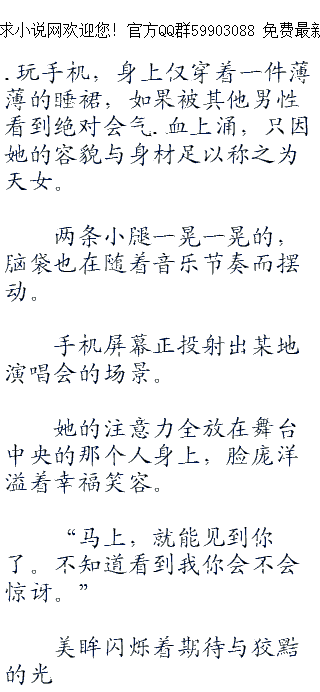 求小说网欢迎您！官方QQ群59903088 免费最新
.玩手机，身上仅穿着一件薄
薄的睡裙，如果被其他男性
看到绝对会气.血上涌，只因
她的容貌与身材足以称之为
天女。
两条小腿一晃一晃的，
脑袋也在随着音乐节奏而摆
动。
手机屏幕正投射出某地
演唱会的场景。
她的注意力全放在舞台
中央的那个人身上，脸庞洋
溢着幸福笑容。
“马上，就能见到你
了。不知道看到我你会不会
惊讶。”
美眸闪烁着期待与狡黠
的光